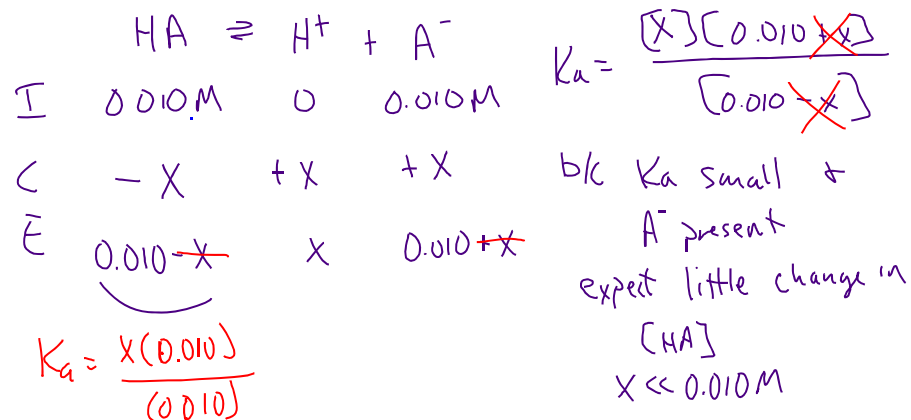 HA ⇌ H⁺ + A⁻
I 0.010M 0 0.010M
C -X +X +X
E 0.010-X X 0.010+X
Ka = X(0.010)
(0.010)
Ka = [X][0.010+X]
[0.010-X]
b/c Ka small &
A⁻ present
expect little change in
[HA]
X << 0.010M